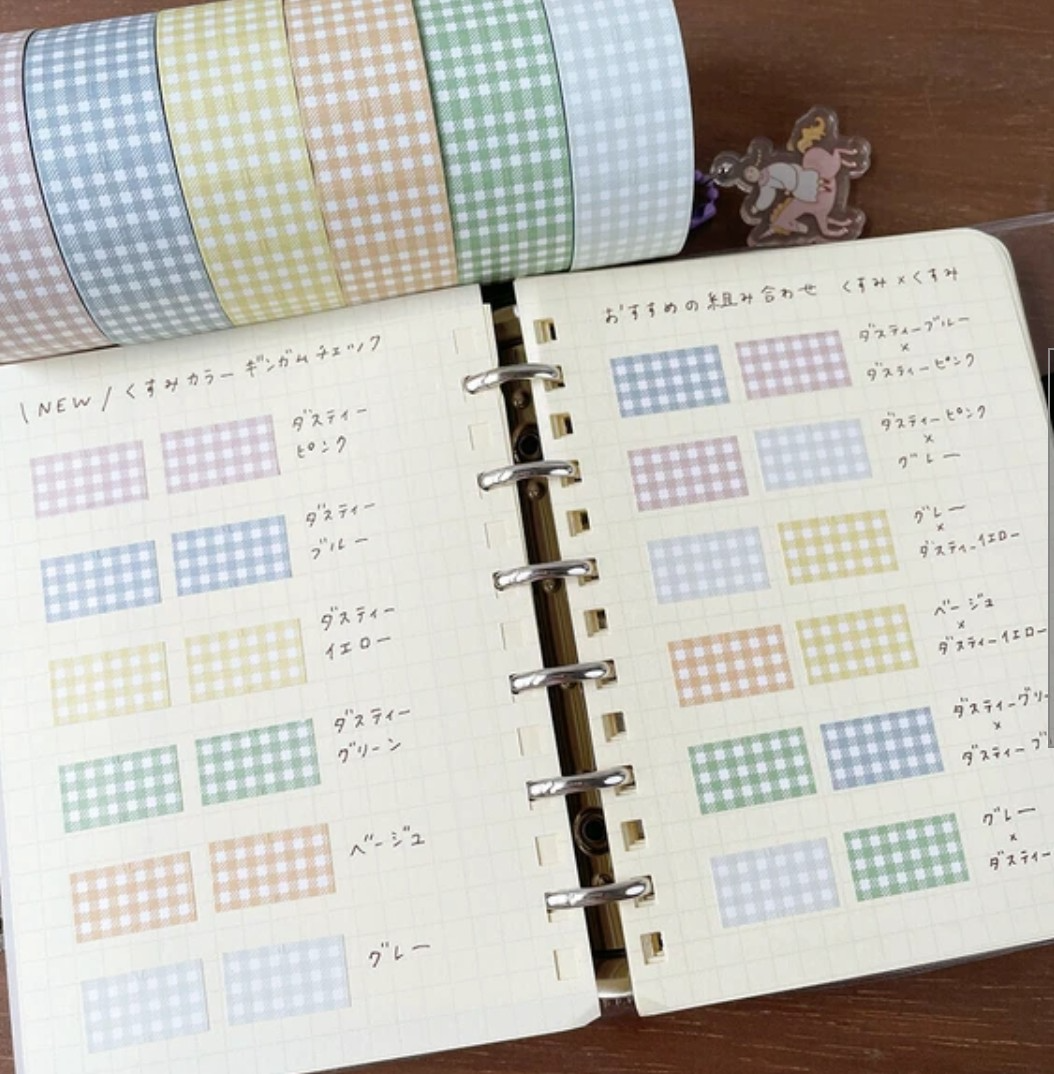 \ NEW / くすみカラー ギンガムチェック
ダスティー
ピンク
ダスティー
ブルー
ダスティー
イエロー
ダスティー
グリーン
ベージュ
グレー
おすすめの組み合わせ くすみ×くすみ
ダスティーブルー
×
ダスティーピンク
ダスティーピンク
×
グレー
グレー
×
ダスティーイエロー
ベージュ
×
ダスティーイエロー
ダスティーグリー
×
ダスティーブ
グレー
×
ダスティー